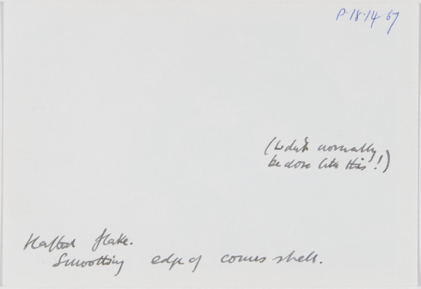 P.18.14.67
normally
be done like this!)
Hafted flake.
Smoothing edge of conus shell.